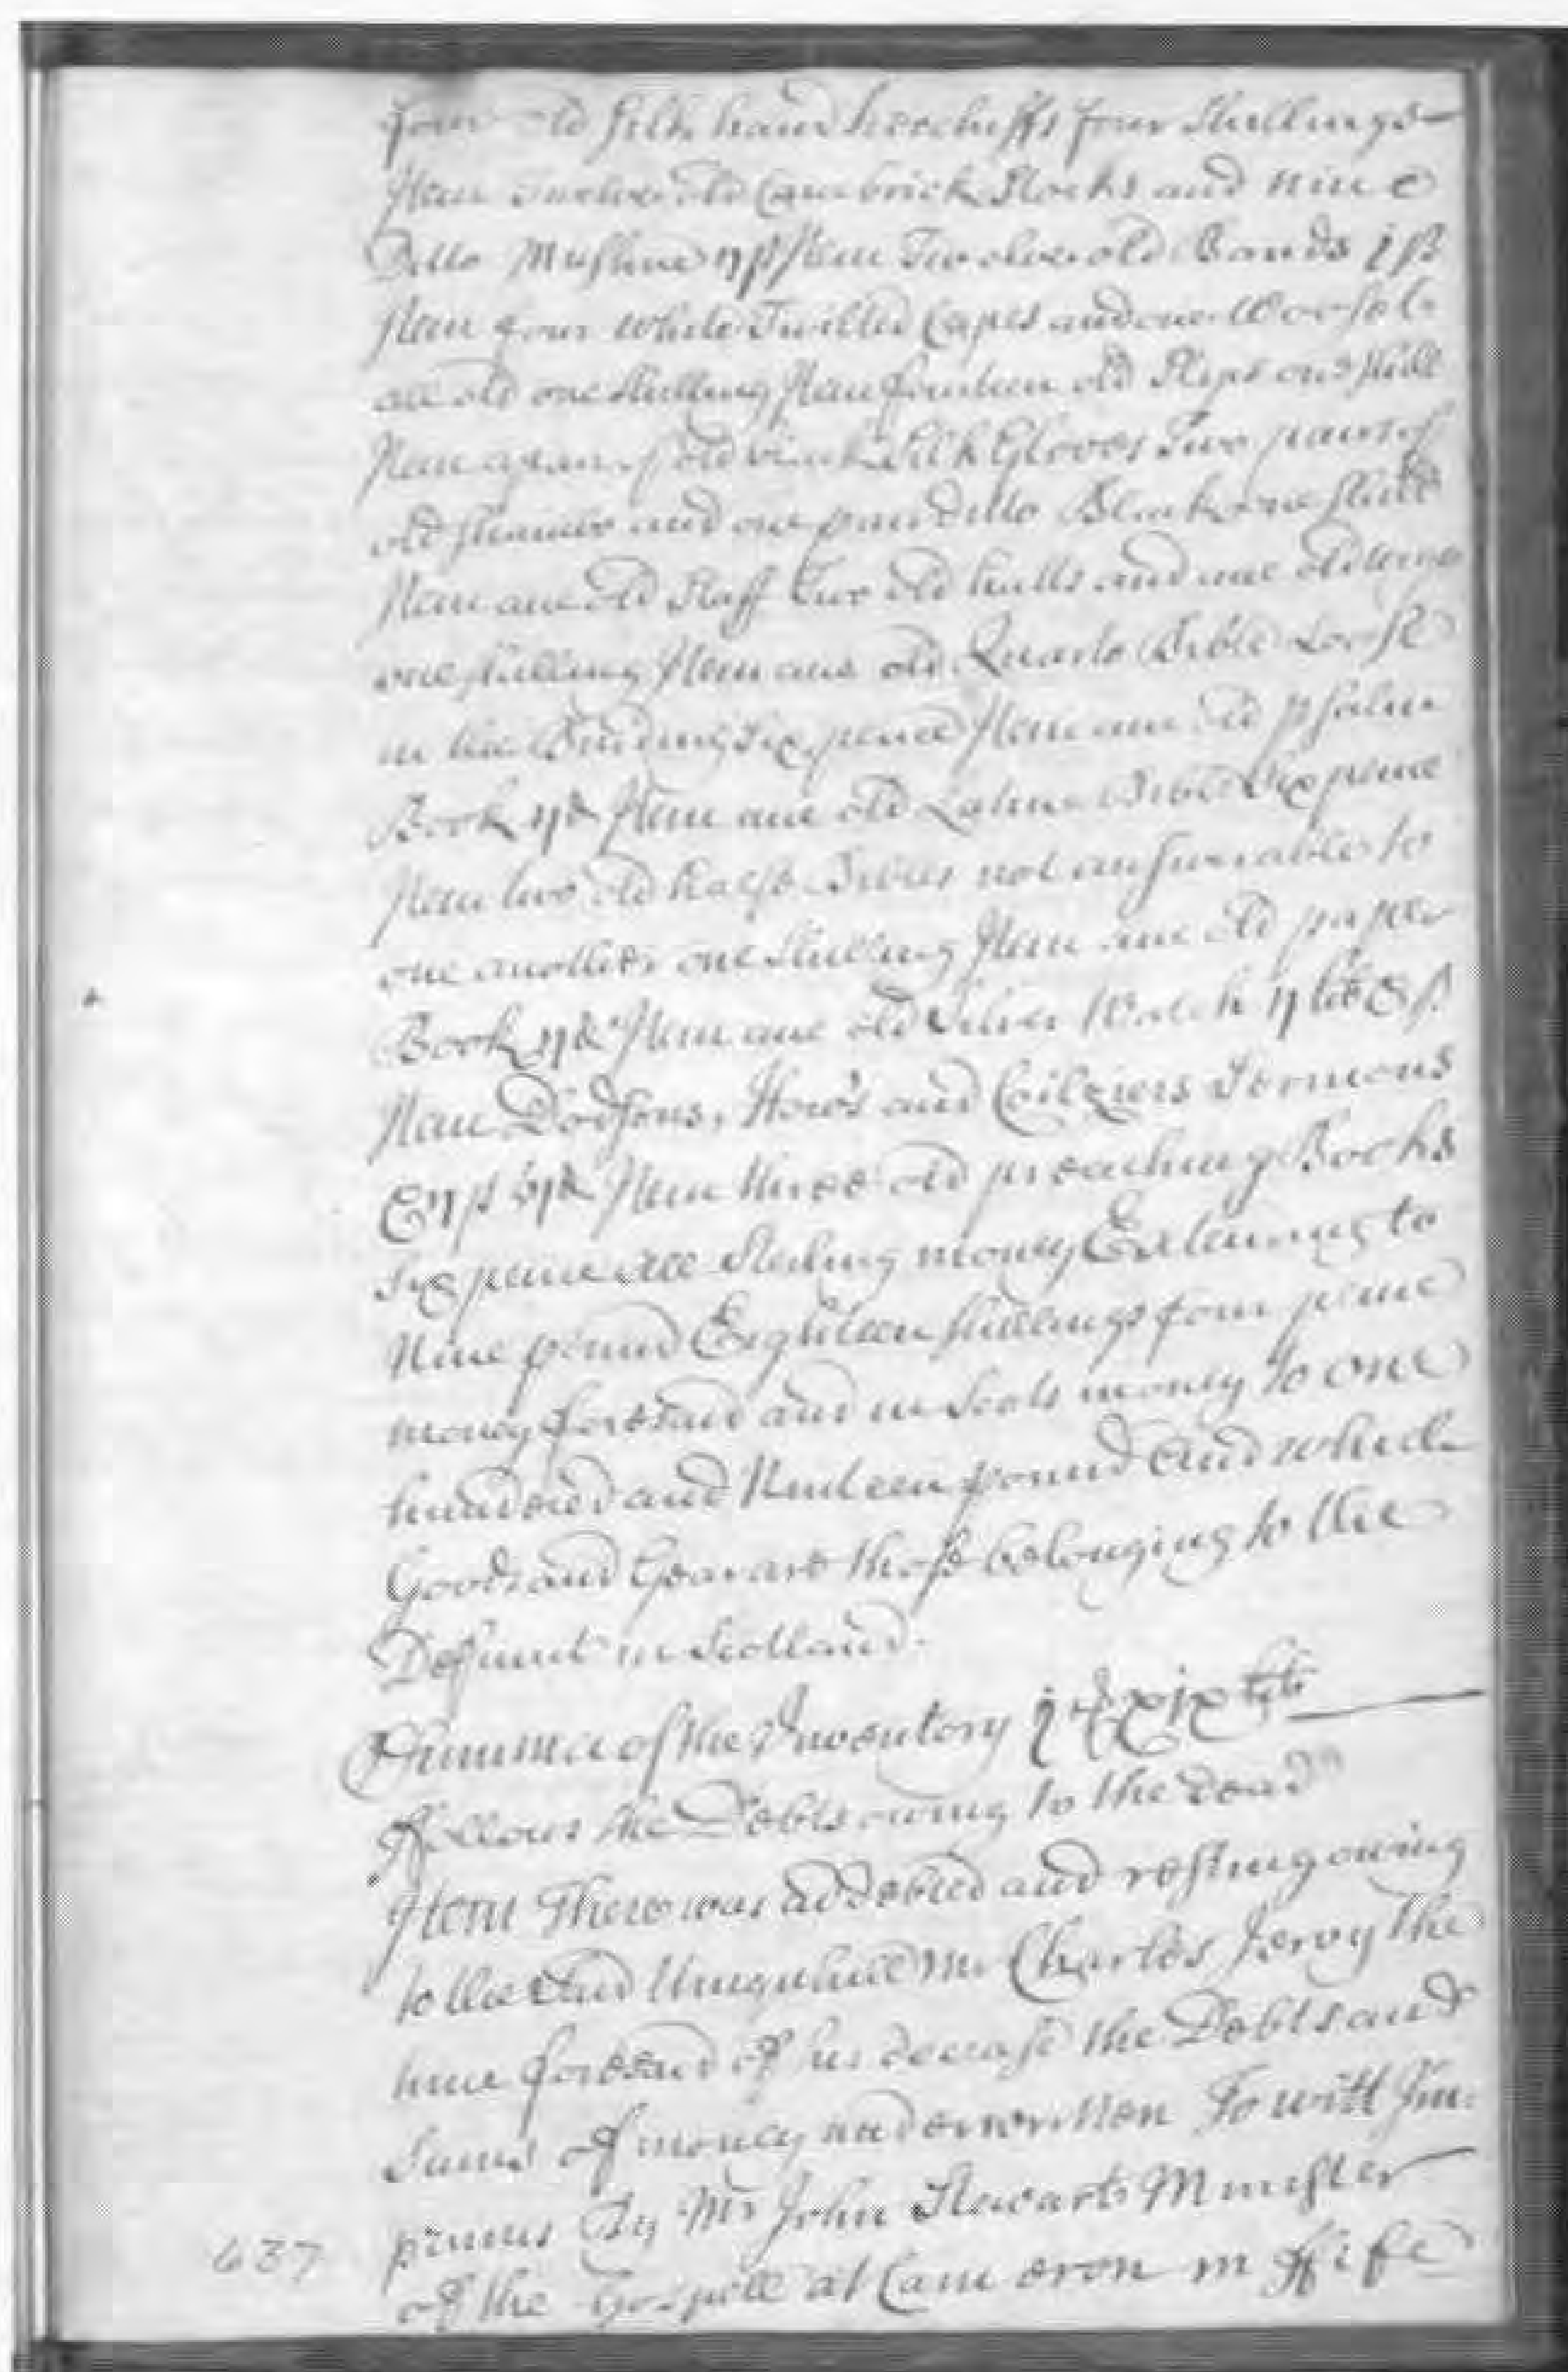 four old silk hand kerchiffs four shillings
Item Twelve old Cambrick Stocks and nine
Ditto Musline ij ſs Item Twelve old Bands j ſs
Item four white Twilled Capes and one
all old one shilling Item fourteen old Slips one shill
Item a pair of old black Silk Gloves Two pairs of
old and one pair ditto Black one shill
Item ane old Staff Two old hatts and ane old
one shilling Item ane old Quarto Bible Loose
in the Binding Six pence Item ane old psalm
Book ij d Item ane old Latine Bible Six pence
Item two old half Bibles not ansuerable to
one another one shilling Item ane old paper
Book ij d Item ane old Silver Watch ij lib
Item Dodsons, How's and Sermons
Item three old preaching Books
Six pence all Sterling money Extending to
Nine pound Eighteen shillings four pence
money foresaid and in Scots money to one
hundered and Nineteen pound and which
Goods and Gear are those belonging to the
Defunct in Scotland.
Summa of the Inventory jᶜxix lib
ffollows the Debts owing to the dead
Item There was addebted and resting owing
to the said Umquhile Mr Charles Jervy the
time foresaid of his decease the Debts and
Sums of money underwritten To witt Im:
primis By Mr John Stewart Minister
of the Gospell at Cameron in ffife
637